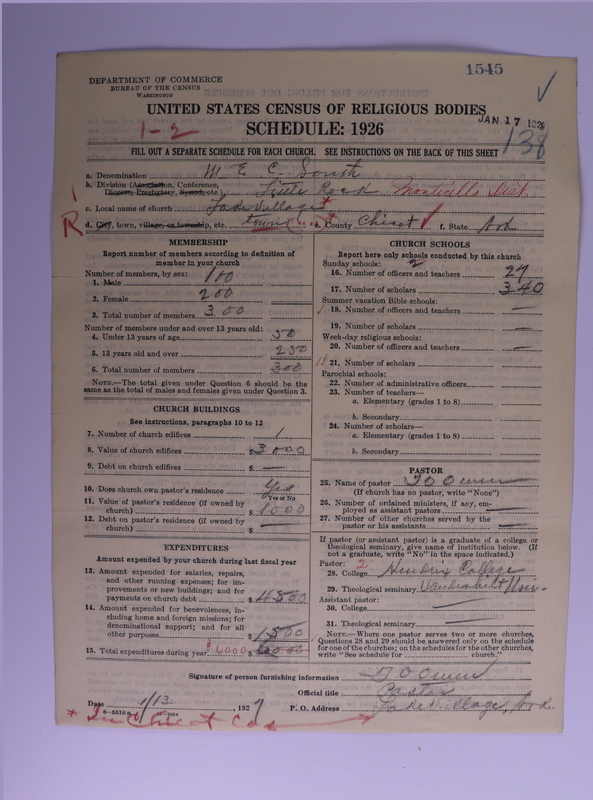 1545
DEPARTMENT OF COMMERCE
BUREAU OF THE CENSUS
WASHINGTON
UNITED STATES CENSUS OF RELIGIOUS BODIES
JAN 17 192
1-2
SCHEDULE: 1926
138
FILL OUT A SEPARATE SCHEDULE FOR EACH CHURCH. SEE INSTRUCTIONS ON THE BACK OF THIS SHEET
a. Denomination M E C South
b. Division (Association, Conference, Diocese, Presbytery, Synod, etc.) Little Rock Monticello Dist.
c. Local name of church Lake Village *
R
d. City, town, village, or township, etc. town e. County Chicot f. State Ark
MEMBERSHIP
Report number of members according to definition of
member in your church
Number of members, by sex:
1. Male 100
2. Female 200
3. Total number of members 300
Number of members under and over 13 years old:
4. Under 13 years of age 50
5. 13 years old and over 250
6. Total number of members 300
NOTE.—The total given under Question 6 should be the
same as the total of males and females given under Question 3.
CHURCH BUILDINGS
See instructions, paragraphs 10 to 12
7. Number of church edifices 1
8. Value of church edifices $ 3000
9. Debt on church edifices $ —
10. Does church own pastor's residence Yes
Yes or No
11. Value of pastor's residence (if owned by
church) $ 1000
12. Debt on pastor's residence (if owned by
church) $ —
EXPENDITURES
Amount expended by your church during last fiscal year
13. Amount expended for salaries, repairs,
and other running expenses; for im-
provements or new buildings; and for
payments on church debt $ 4500
14. Amount expended for benevolences, in-
cluding home and foreign missions; for
denominational support; and for all
other purposes $ 1500
15. Total expenditures during year $ 6000
CHURCH SCHOOLS
Report here only schools conducted by this church
Sunday schools: 2
16. Number of officers and teachers 27
17. Number of scholars 340
Summer vacation Bible schools:
18. Number of officers and teachers —
19. Number of scholars —
Week-day religious schools:
20. Number of officers and teachers —
21. Number of scholars
Parochial schools:
22. Number of administrative officers
23. Number of teachers—
a. Elementary (grades 1 to 8)
b. Secondary
24. Number of scholars—
a. Elementary (grades 1 to 8)
b. Secondary
PASTOR
25. Name of pastor Owen
(If church has no pastor, write "None")
26. Number of ordained ministers, if any, em-
ployed as assistant pastors —
27. Number of other churches served by the
pastor or his assistants —
If pastor (or assistant pastor) is a graduate of a college or
theological seminary, give name of institution below. (If
not a graduate, write "No" in the space indicated.)
Pastor: 2
28. College Hendrix College
29. Theological seminary Vanderbilt Univ-
Assistant pastor:
30. College —
31. Theological seminary —
NOTE.—Where one pastor serves two or more churches,
Questions 28 and 29 should be answered only on the schedule
for one of the churches; on the schedules for the other churches,
write "See schedule for church."
Signature of person furnishing information Owen
Official title Pastor
Date 1/13, 1927 P. O. Address Lake Village, Ark.
* In Chicot Co